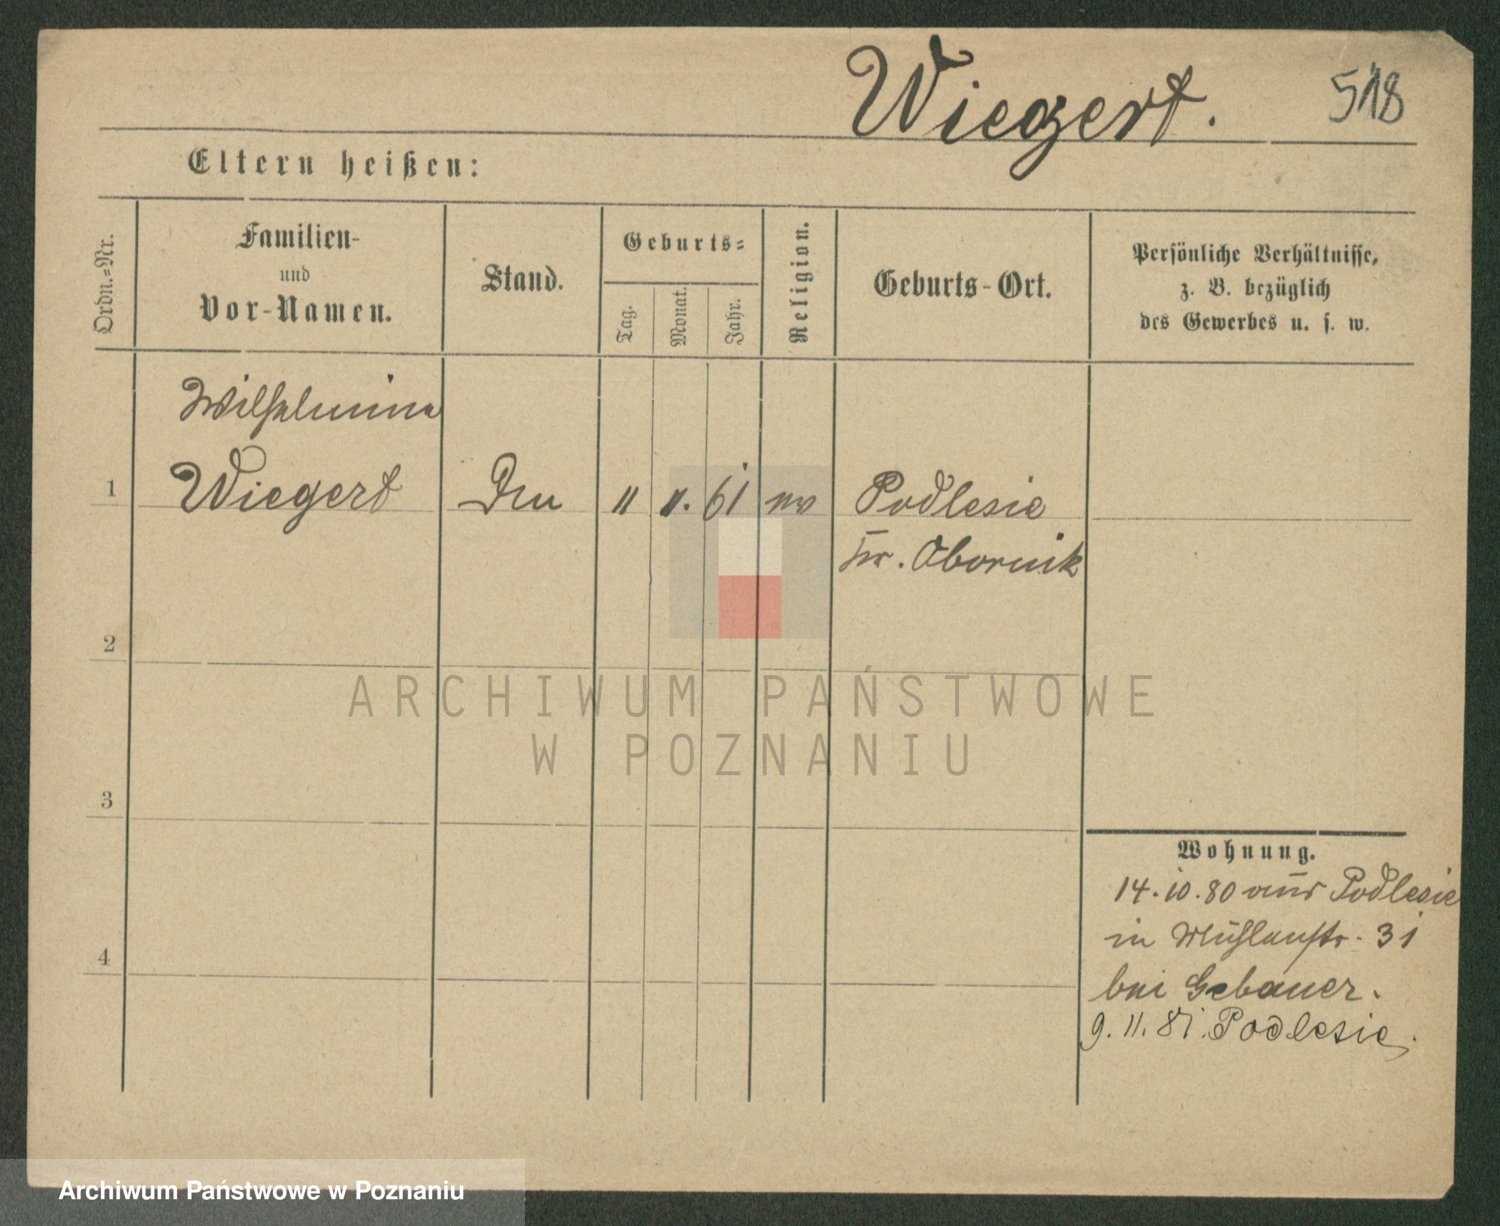 Wiegert. 518
Eltern heißen:
Ordn.=Nr.
Familien-
und
Vor-Namen.
Stand.
Geburts=
Tag.
Monat.
Jahr.
Religion.
Geburts-Ort.
Persönliche Verhältnisse,
z. B. bezüglich
des Gewerbes u. s. w.
Wilhelmine
1 Wiegert " ". 61 Podlesie
Kr. Obornik
2
3
4
Wohnung.
14.10.80 aus Podlesie
in Mühlenstr. 31
bei Gebauer.
9.11.81. Podlesie.
ARCHIWUM PAŃSTWOWE
W POZNANIU
Archiwum Państwowe w Poznaniu